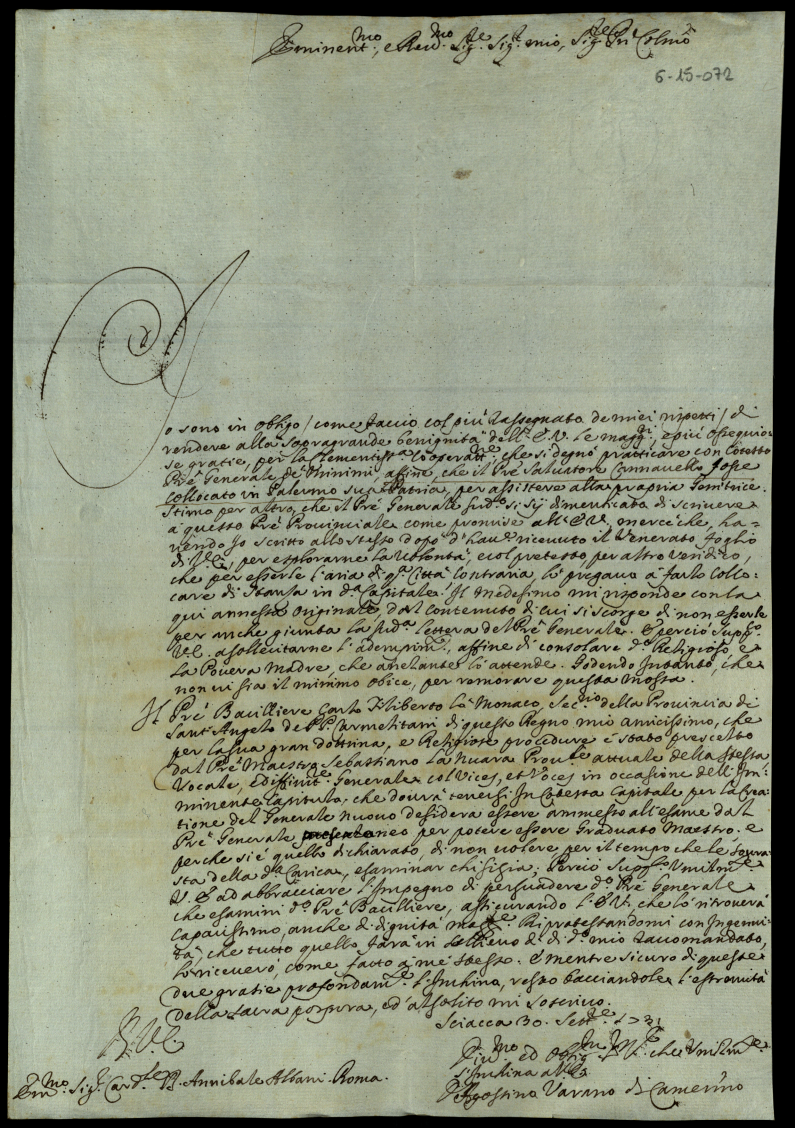 Eminent.mo, e Rev.mo Sig.re Sig.r mio, Sig.re P.ne Colmo
6-15-072
Io sono in obligo / come faccio col più rassegnato de miei rispetti / di
rendere alla sopragrande benignità dell'E.V. le magg.ri, e più ossequio=
se gratie, per la clementiss.a cooperat.ne, che si degnò pratticare con cotesto
Prē Generale de Minimi, affine, che il Prē Salvatore fosse
collocato in Palermo sua Patria, per assistere alla propria Genitrice.
Stimo per altro, che il Prē Generale sud.o si sij dimenticato di scrivere
a questo Prē Provinciale come promise all'E.V., mercè che, ha=
vendo Io scritto allo stesso dopò d'haver ricevuto il Venerato foglio
di V.E., per esplorarne la Volontà, e col pretesto, per altro veridico,
che per esserle l'aria di q.a Città contraria, lo pregavo à farlo collo=
care di stanza in d.a Capitale: Il medesimo mi risponde con la
qui annessa originale, dal contenuto di cui si scorge di non esserle
per anche giunta la sud.a lettera del Prē Generale. E perciò supp.co
V.E. a sollecitarne l'adempim.to, affine di consolare d.o Religioso, e
la Povera Madre, che anelante lo attende. Godendo intanto, che
non vi sia il minimo obice, per remorare questa mossa.
Il Prē Bacilliere Carlo Filiberto Lo Monaco, Sec.rio della Provincia di
Sant'Angelo de PP. Carmelitani di questo Regno mio amicissimo, che
per la sua gran dottrina, e Religiose procedure è stato prescelto
dal Prē Maestro Sebastiano La Nuara Prov.le attuale della stessa
Vocale, e diffinit.e Generale col Vices, et Voces in occasione dell'Im=
minente Capitulo, che dovrà tenersi in cotesta Capitale per la Crea=
tione del Generale nuovo desidera essere ammesso all'esame dal
Prē Generale per potere essere Graduato Maestro. e
perche si è quello dichiarato, di non volere per il tempo che le sovra=
sta della d.a Carica, esaminar chi si sia; Perciò supp.co Umilm.te
V.E. ad abbracciare l'Impegno di persuadere d.o Prē Generale
che esamini d.o Prē Bacilliere, assicurando l'E.V. che lo ritroverà
capacissimo, anche di dignità magg.re. Riprotestandomi con Ingenui=
tà, che tutto quello, farà in sollievo di d.o mio raccomandato,
lo riceverò, come fatto a me stesso. E mentre sicuro di queste
due gratie profondam.te l'Inchino, resto bacciandole l'estremità
della sacra porpora, ed al solito mi soscrivo.
Sciacca 30. Sett.re 1731
D.V.E.
Div.mo ed oblig.mo che Umilm.te
s'Inchina a V.E.
Em.mo Sig.r Card.le D. Annibale Albani. Roma.
Agostino Varano di Camerino